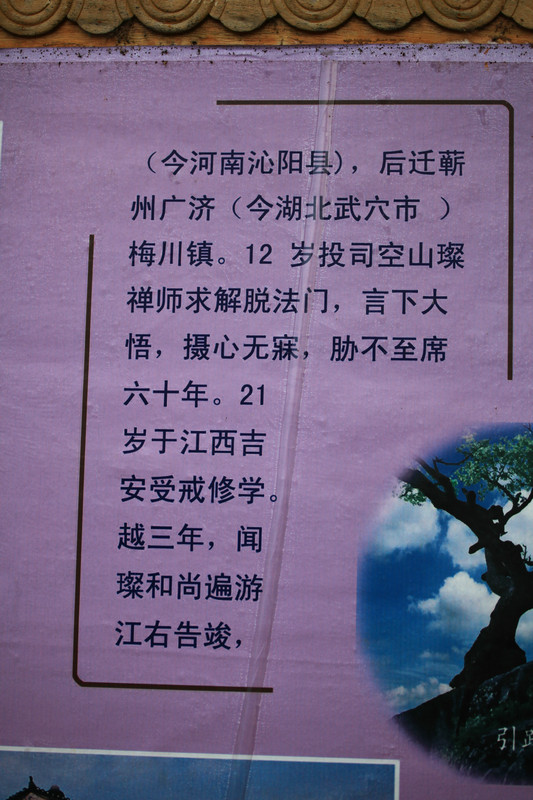 （今河南沁阳县），后迁蕲
州广济（今湖北武穴市 ）
梅川镇。12 岁投司空山璨
禅师求解脱法门，言下大
悟，摄心无寐，胁不至席
六十年。21
岁于江西吉
安受戒修学。
越三年，闻
璨和尚遍游
江右告竣，
引